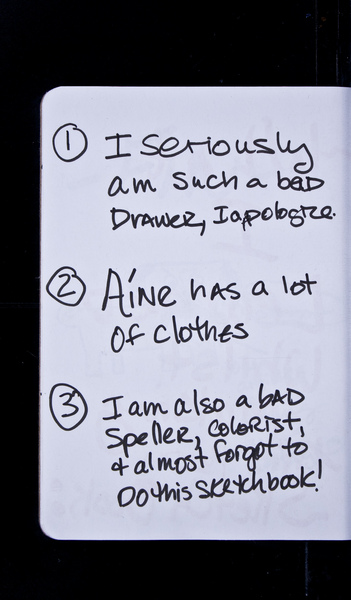 ① I seriously
am such a bad
Drawer, I apologize.
② Áine has a lot
of clothes
③ I am also a bad
Speller, colorist,
& almost forgot to
Do this sketchbook!